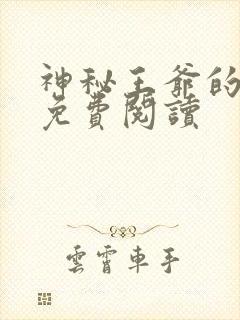 神秘王爺的
免費閱讀
雲霄車手